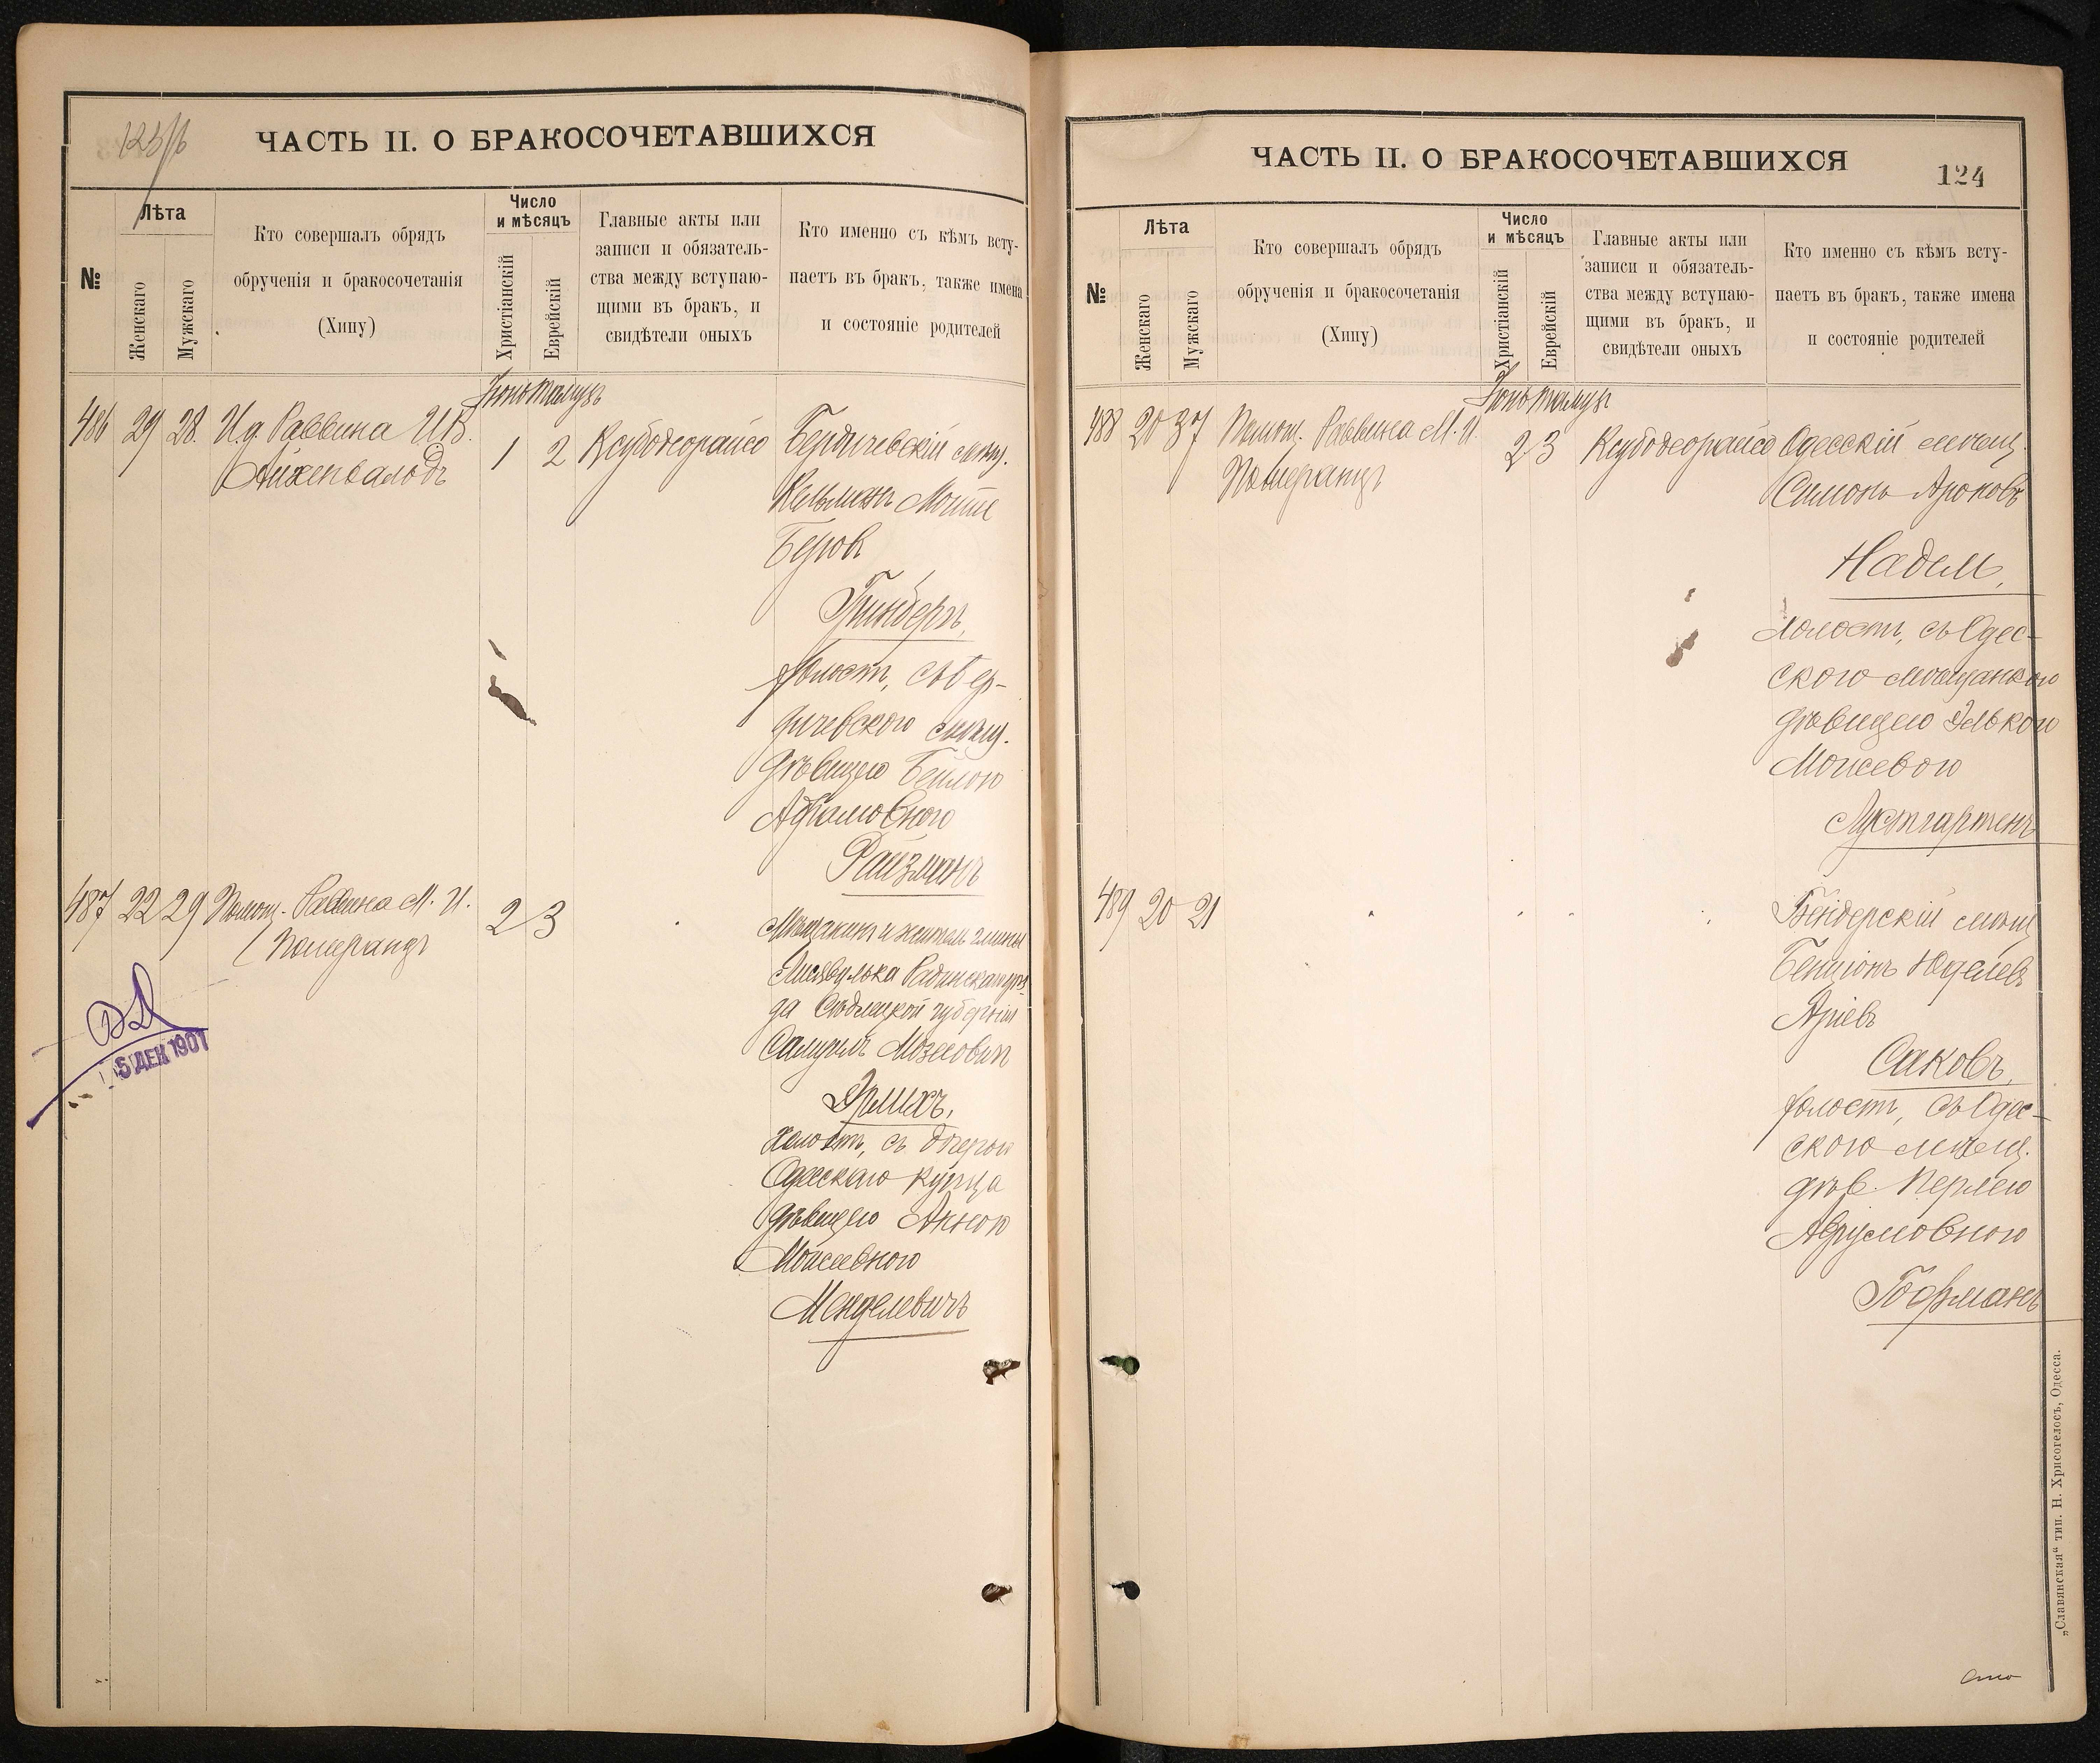 ЧАСТЬ II. О БРАКОСОЧЕТАВШИХСЯ
№
Лѣта
Женскаго
Мужскаго
Кто совершалъ обрядъ
обрученія и бракосочетанія
(Хипу)
Число
и мѣсяцъ
Христіанскій
Еврейскій
Главные акты или
записи и обязатель-
ства между вступаю-
щими въ бракъ, и
свидѣтели оныхъ
Кто именно съ кѣмъ всту-
паетъ въ бракъ, также имена
и состояніе родителей
Іюнь Тамузъ
486 29 28. И.д. Раввина
Айхенвальдъ
1 2
Бердичевскій мѣщ.
Кельманъ Моште
Беров
Гринбергъ,
холостъ, съ Бер-
дичевского мѣщ.
дѣвицею Бейлою
Абрамовною
Файзманъ
487 22 29 Помощ. Раввина М. И.
Померанцъ
2 3
Мѣщанинъ и житель гмины
Радинскаго уѣз-
да Сѣдлецкой губерніи
Самуилъ
Эрлихъ,
холостъ, съ дочерью
Одесскаго купца
дѣвицею Анною
Моисеевною
Менделевичъ
5 ДЕК 1901
ЧАСТЬ II. О БРАКОСОЧЕТАВШИХСЯ
124
№
Лѣта
Женскаго
Мужскаго
Кто совершалъ обрядъ
обрученія и бракосочетанія
(Хипу)
Число
и мѣсяцъ
Христіанскій
Еврейскій
Главные акты или
записи и обязатель-
ства между вступаю-
щими въ бракъ, и
свидѣтели оныхъ
Кто именно съ кѣмъ всту-
паетъ въ бракъ, также имена
и состояніе родителей
Іюнь Тамузъ
488 20 37 Помощ. Раввина М. И.
Померанцъ
2 3
Одесскій мѣщ.
Симонъ Ароновъ
Надель,
холостъ, съ Одес-
ского мѣщанкою
дѣвицею Элькою
Моисевою
Лустгартенъ
489 20 21
Бендерскій мѣщ
Бенціонъ Юделевъ
Аріевъ
Саковъ,
холостъ, съ Одес-
ского мѣщ.
дѣв. Перлею
Аврумовною
Гофманъ
„Славянская“ тип. Н. Хрисогелосъ, Одесса.